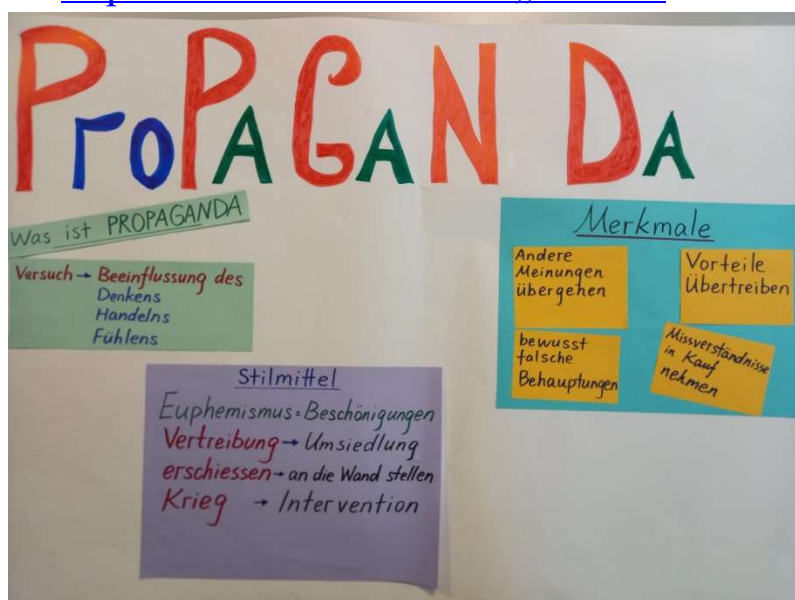 PrOPAGANDA
Was ist PROPAGANDA
Versuch → Beeinflussung des
Denkens
Handelns
Fühlens
Stilmittel
Euphemismus = Beschönigungen
Vertreibung → Umsiedlung
erschiessen → an die Wand stellen
Krieg → Intervention
Merkmale
Andere
Meinungen
übergehen
Vorteile
Übertreiben
bewusst
falsche
Behauptungen
Missverständnisse
in Kauf
nehmen